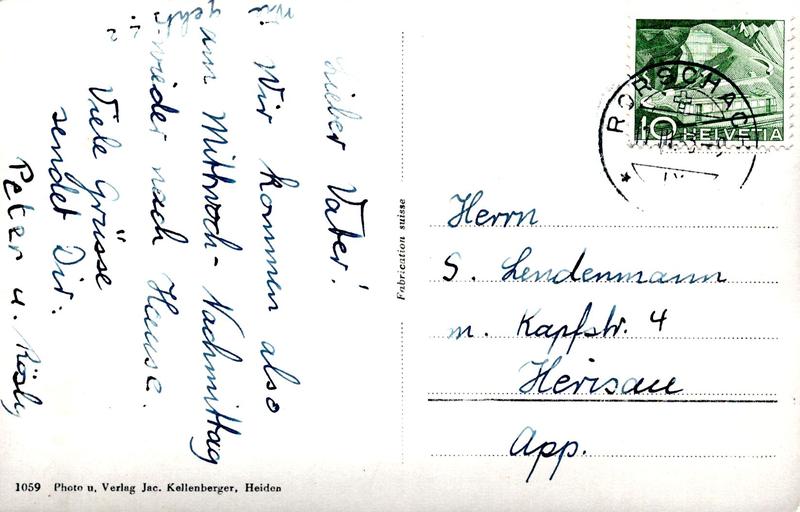 Lieber Vater!
Wir kommen also
am Mittwoch-Nachmittag
wieder nach Hause.
Viele Grüsse
sendet Dir:
Peter u. Rösly
Fabrication suisse
RORSCHAC
10 HELVETIA
Herrn
S. Lendenmann
m. Kapfstr. 4
Herisau
App.
1059 Photo u. Verlag Jac. Kellenberger, Heiden